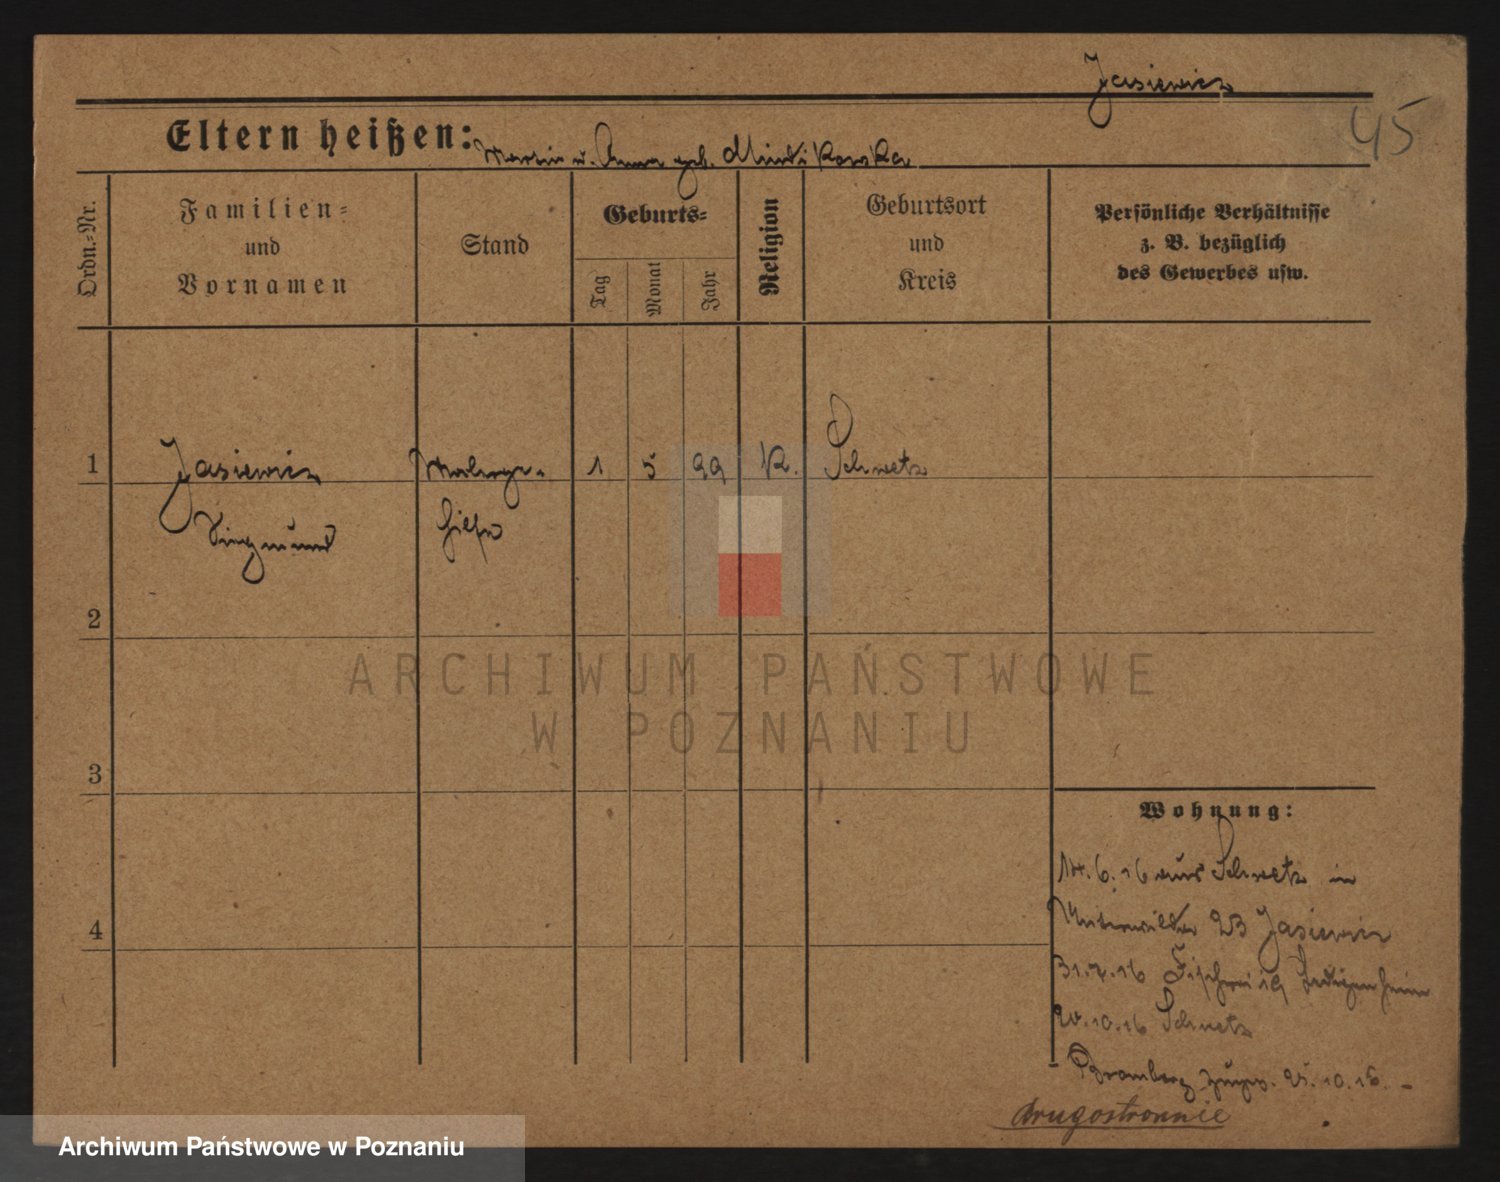 Jasiewicz
45
Eltern heißen: Marzin u. Anna geb. Mindikowska
Ordn.=Nr.
Familien=
und
Vornamen
Stand
Geburts=
Tag
Monat
Jahr
Religion
Geburtsort
und
Kreis
Persönliche Verhältnisse
z. B. bezüglich
des Gewerbes usw.
1 Jasiewicz 1 5 99 K. Schwetz
Siegmund
2
ARCHIWUM PAŃSTWOWE
W POZNANIU
3
Wohnung:
14.6.16 aus Schwetz in
4
23 Jasiewicz
31.7.16 19
20.10.16 Schwetz
Bromberg
drugostronnie
Archiwum Państwowe w Poznaniu